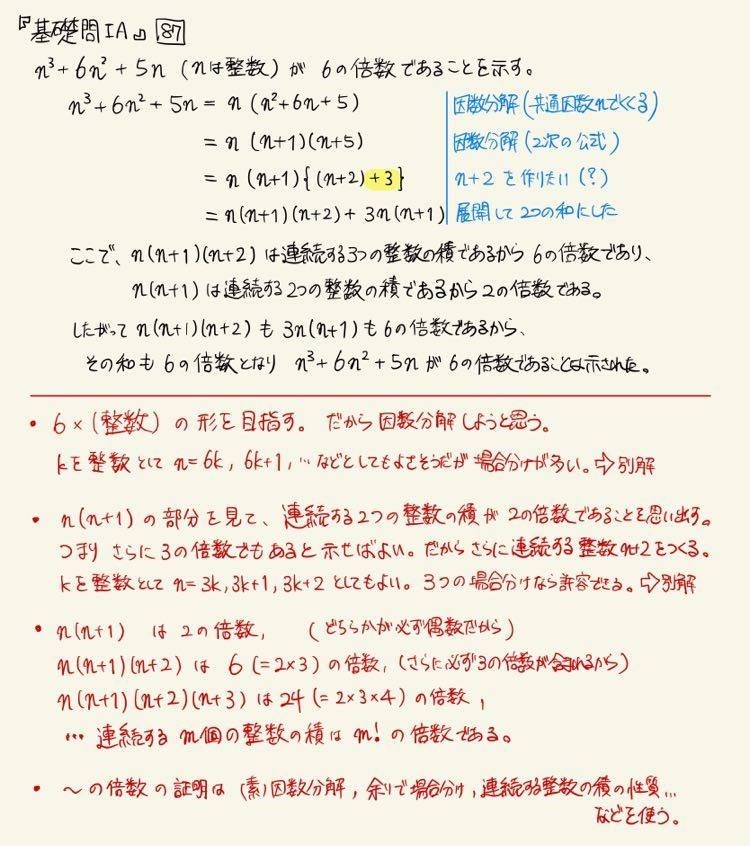 『基礎問ⅠA』 87
n³+6n²+5n (nは整数) が 6の倍数であることを示す。
n³+6n²+5n = n(n²+6n+5) 因数分解(共通因数nでくくる)
= n(n+1)(n+5) 因数分解(2次の公式)
= n(n+1){(n+2)+3} n+2を作りたい(?)
= n(n+1)(n+2)+3n(n+1) 展開して2つの和にした
ここで、n(n+1)(n+2)は連続する3つの整数の積であるから6の倍数であり、
n(n+1)は連続する2つの整数の積であるから2の倍数である。
したがって n(n+1)(n+2)も 3n(n+1)も6の倍数であるから、
その和も6の倍数となり n³+6n²+5nが6の倍数であることは示された。
・6×(整数)の形を目指す。だから因数分解しようと思う。
kを整数として n=6k, 6k+1, …などとしてもよさそうだが場合分けが多い。⇨別解
・n(n+1)の部分を見て、連続する2つの整数の積が2の倍数であることを思い出す。
つまり さらに3の倍数でもあると示せばよい。だからさらに連続する整数n+2をつくる。
kを整数として n=3k, 3k+1, 3k+2としてもよい。3つの場合分けなら許容できる。⇨別解
・n(n+1) は 2の倍数, (どちらかが必ず偶数だから)
n(n+1)(n+2)は 6(=2×3)の倍数, (さらに必ず3の倍数が含まれるから)
n(n+1)(n+2)(n+3)は24(=2×3×4)の倍数,
… 連続する m個の整数の積は m! の倍数である。
・〜の倍数の証明は(素)因数分解, 余りで場合分け, 連続する整数の積の性質…
などを使う。